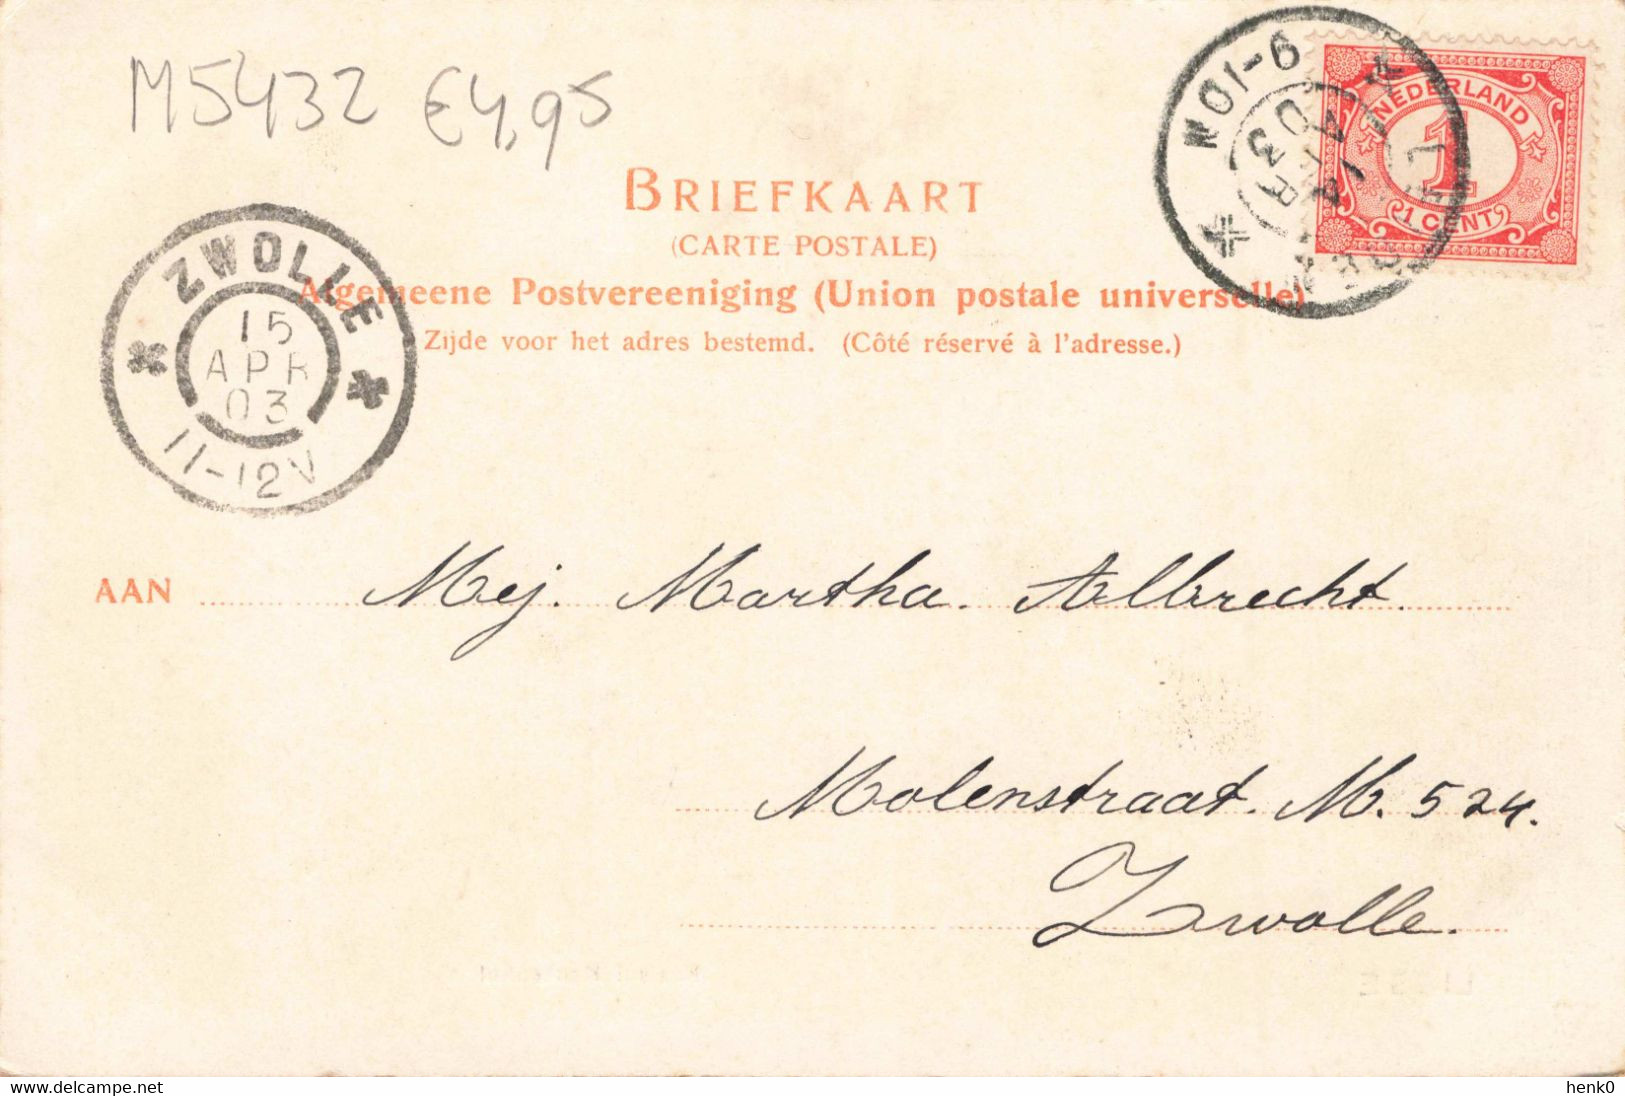 M5432 €4,95
NEDERLAND
1
1 CENT
9-10N
14
APR
03
BRIEFKAART
(CARTE POSTALE)
Algemeene Postvereeniging (Union postale universelle)
Zijde voor het adres bestemd. (Côté réservé à l'adresse.)
ZWOLLE
15
APR
03
11-12V
AAN Mej. Martha Albrecht.
Molenstraat. M. 524.
Zwolle.
www.delcampe.net
henk0